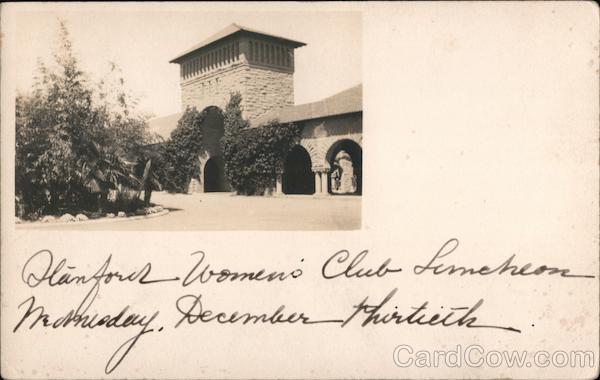 Stanford Women's Club Luncheon
Wednesday, December thirtieth
CardCow.com